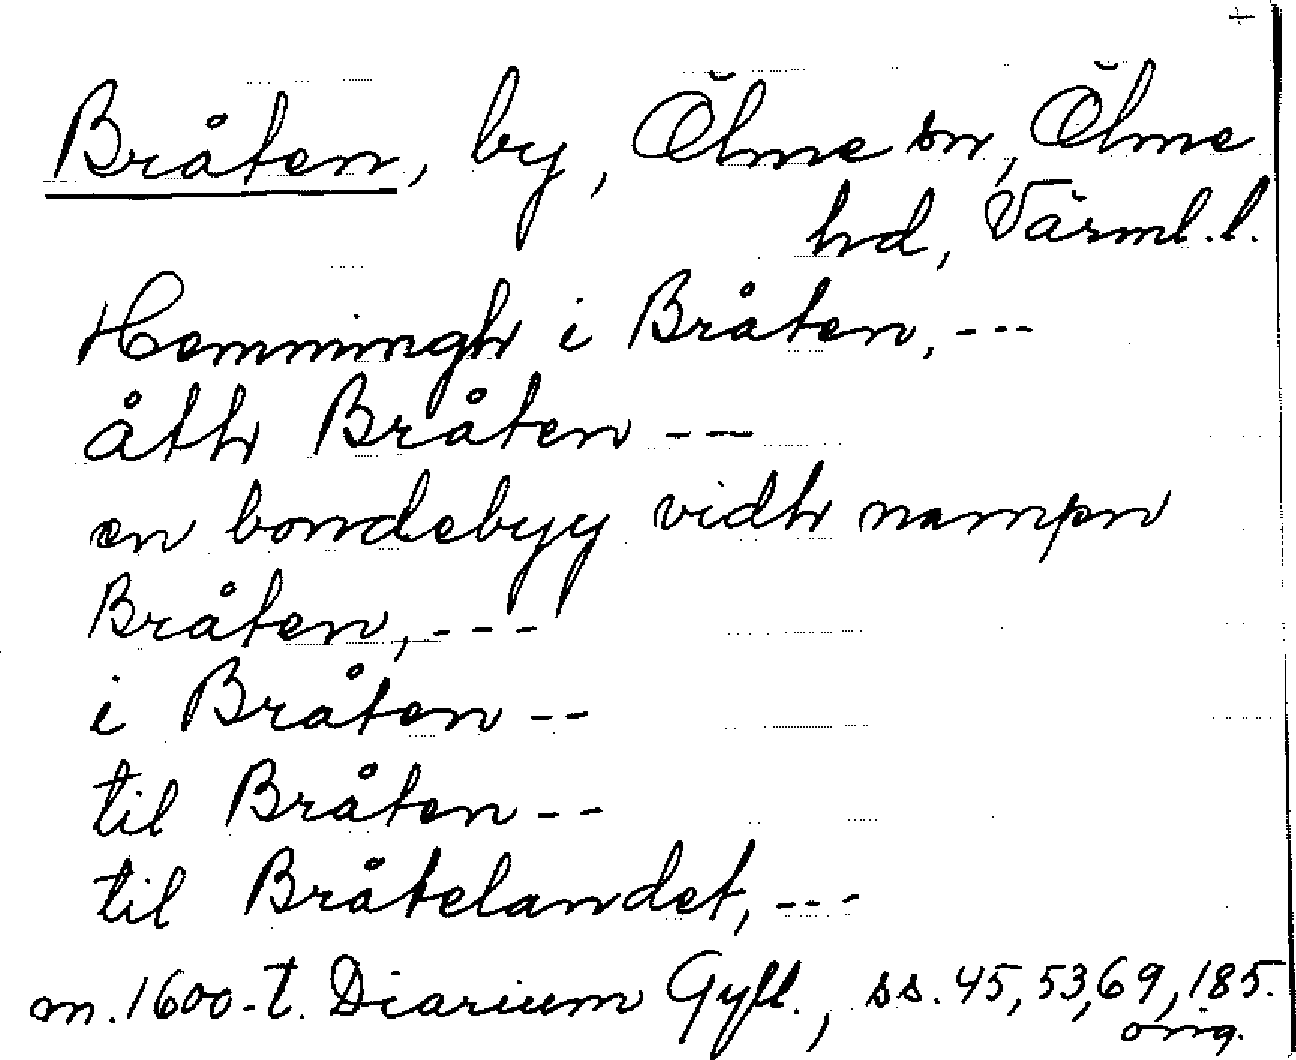 Bråten, by, Ölme sn, Ölme
hd, Värml. l.
Hemmingh i Bråten, ---
åth Bråten ---
en bondebyy vidh nampn
Bråten, ---
i Bråten --
til Bråten --
til Bråtelandet, ---
m. 1600-t. Diarium Gyll., ss. 45, 53, 69, 185.
orig.